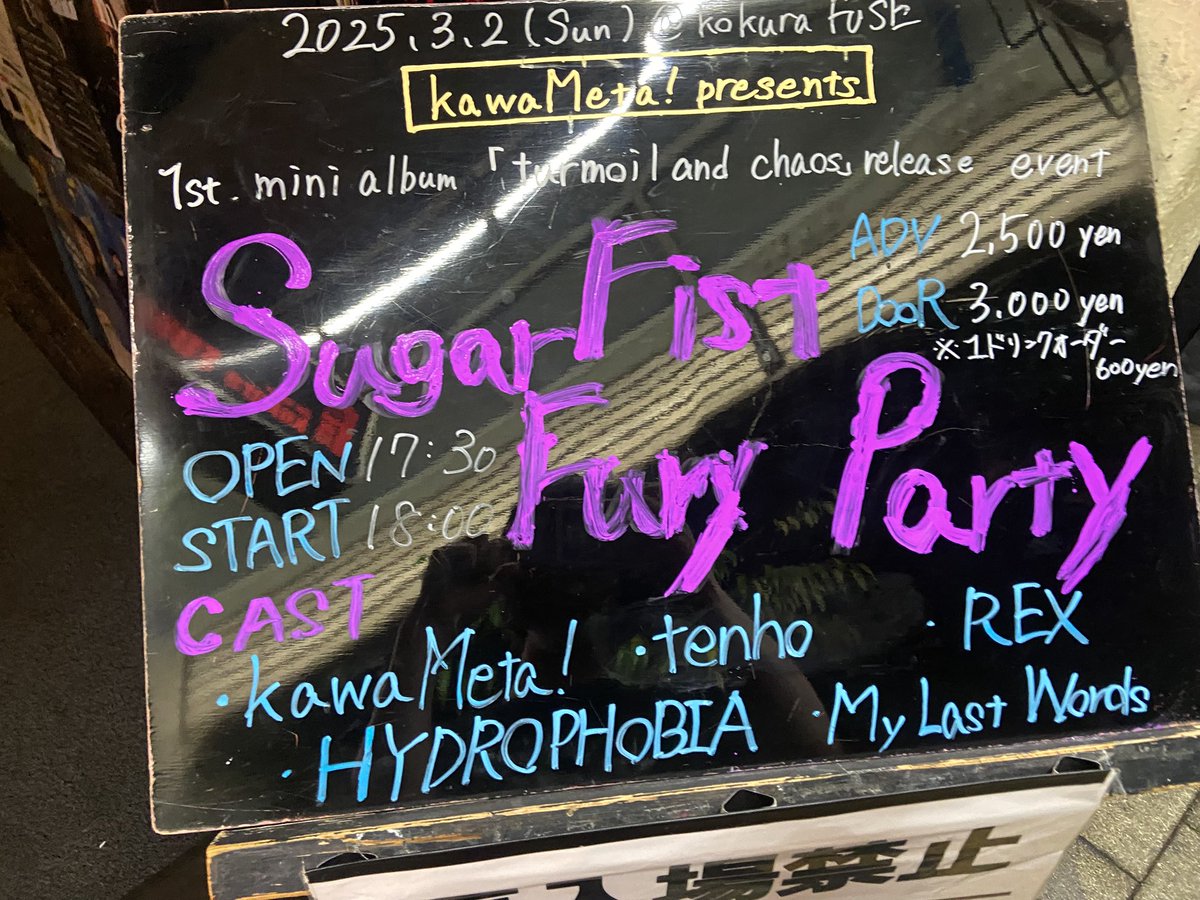 2025.3.2 (Sun) @ kokura FUSE
kawaMeta! presents
1st. mini album 「turmoil and chaos」 release event
ADV 2,500 yen
DOOR 3.000 yen
※1ドリンクオーダー
600yen
Sugar Fist
Fury Party
OPEN 17:30
START 18:00
CAST
・kawaMeta! ・tenho ・REX
・HYDROPHOBIA ・My Last Words
入場禁止